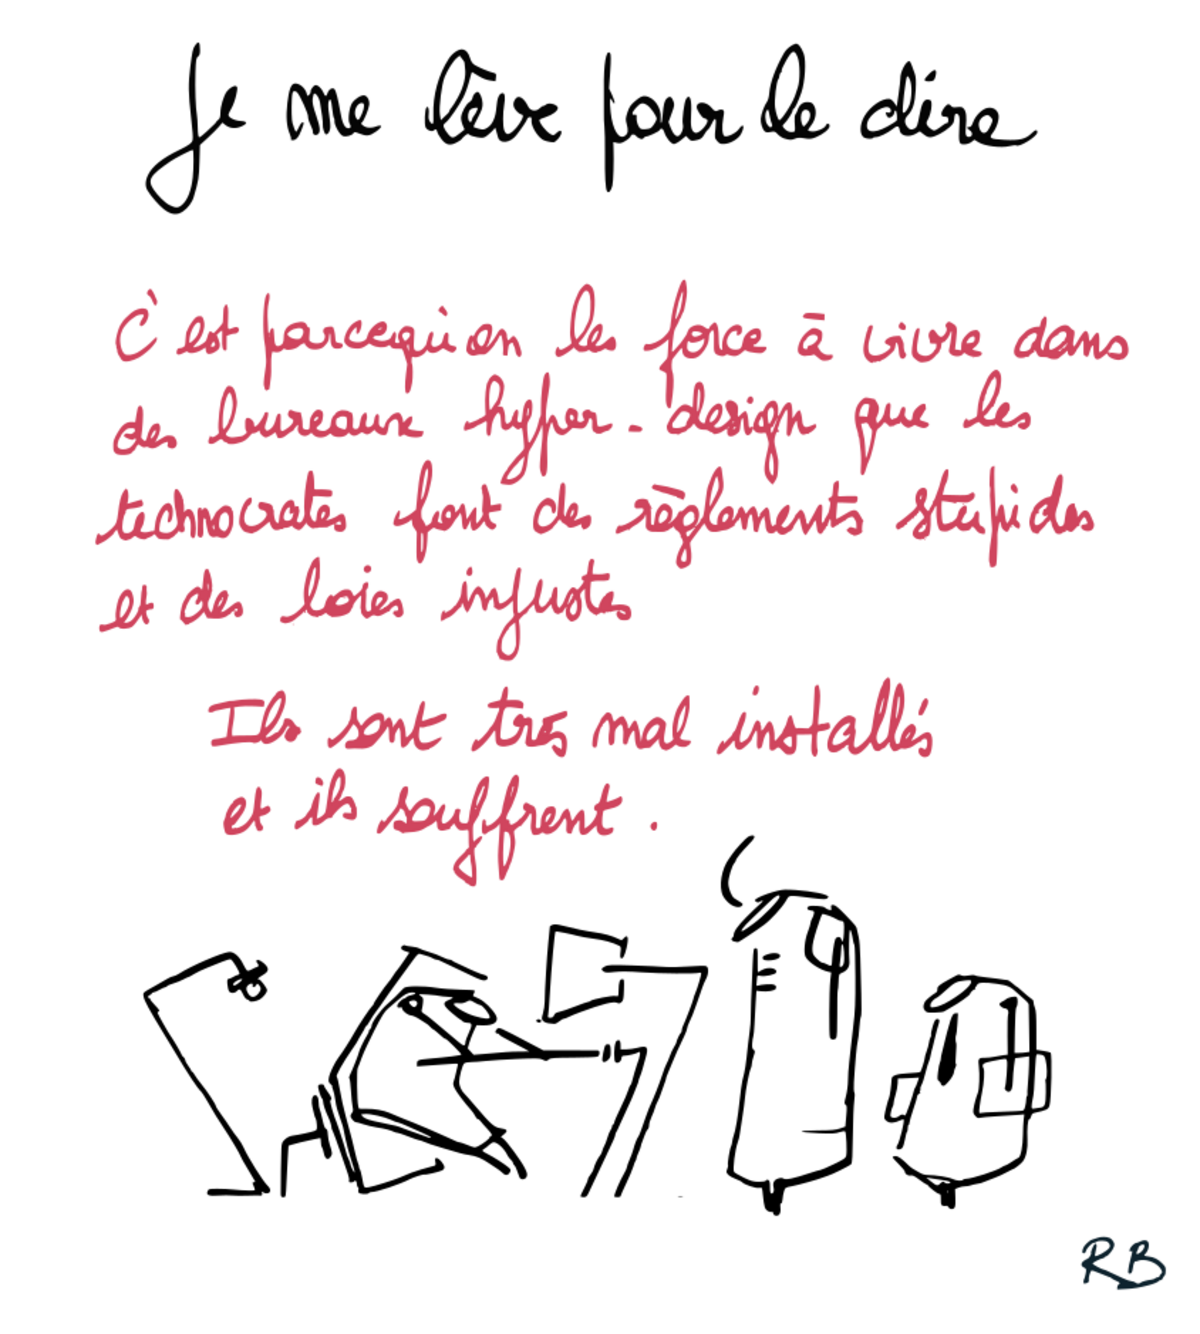 Je me lève pour le dire
C'est parcequ'on les force à vivre dans
des bureaux hyper-design que les
technocrates font des règlements stupides
et des loies injustes
Ils sont très mal installés
et ils souffrent.
RB